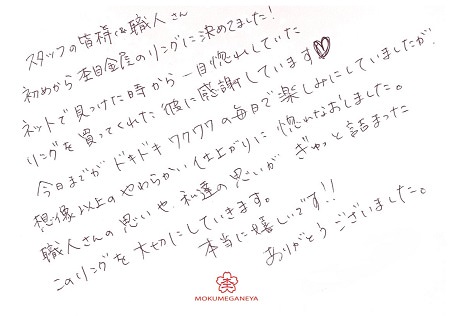 スタッフの皆様&職人さん
初めから杢目金屋のリングに決めてました!
ネットで見つけた時から一目惚れしていた
リングを買ってくれた彼に感謝しています♡
今日までがドキドキワクワクの毎日で楽しみにしていましたが、
想像以上のやわらかい仕上がりに惚れなおしました。
職人さんの思いや、私達の思いがぎゅっと詰まった
このリングを大切にしていきます。
本当に嬉しいです!!
ありがとうございました。
MOKUMEGANEYA